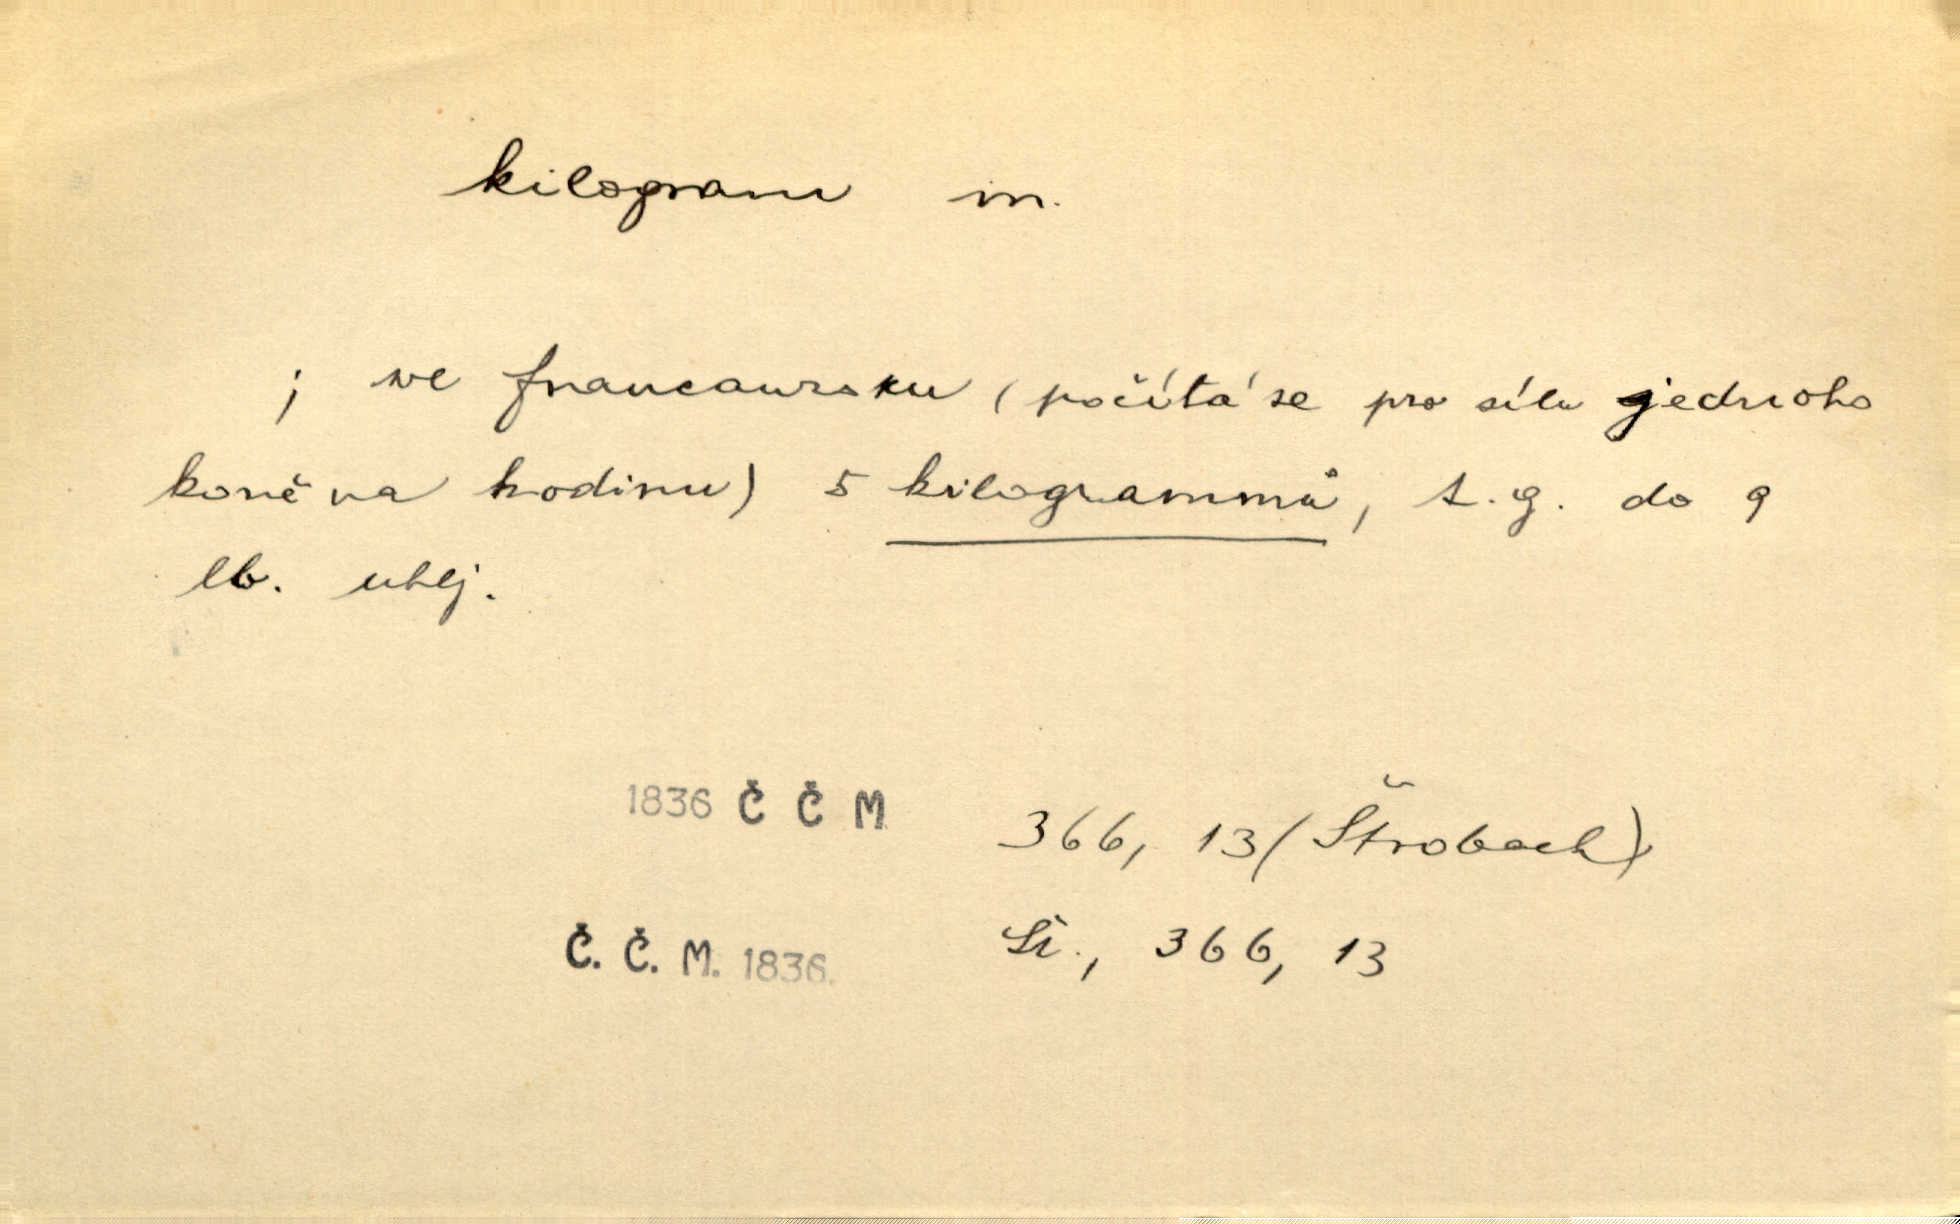 kilogram m.
; we francauzsku (počítá se pro sílu gednoho
koně na hodinu) 5 kilogrammů, t.g. do 9
lb. uhlj.
1836 Č Č M 366, 13 (Štrobach)
Č. Č. M. 1836. 366, 13